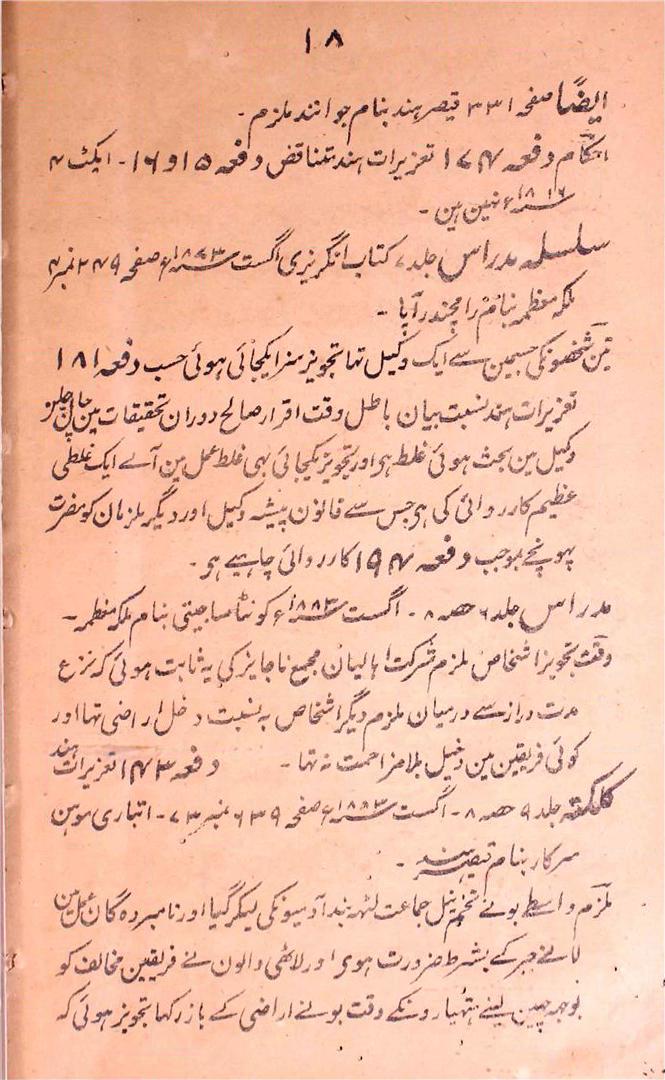 ۱۸
ایضًا صفحہ ۳۳۱ قیصر ہند بنام جوانند ملزم -
احکام دفعہ ۱۷۴ تعزیرات ہند متناقض دفعہ ۱۵ و ۱۶ - ایکٹ ۴
۱۸۱۶ء نہین ہین -
سلسلہ مدراس جلد ۷ کتاب انگریزی اگست ۱۸۷۳ء صفحہ ۲۴۹ نمبر ۴
ملکہ معظمہ بنام رامچندر آپا -
تین شخصونکی جسمین سے ایک وکیل تھا تجویز سزا یکجائی ہوئی حسب دفعہ ۱۸۱
تعزیرات ہند نسبت بیان باطل وقت اقرار صالح دوران تحقیقات مین
وکیل مین بحث ہوئی غلط ہی اور تجویز یکجائی بھی غلط عمل مین آئے ایک غلطی
عظیم کارروائی کی ہی جس سے قانون پیشہ وکیل اور دیگر ملزمان کو مضرت
پہونچے بموجب دفعہ ۱۹۴ کارروائی چاہیے ہی -
مدراس جلد ۶ حصہ ۸ - اگست ۱۸۸۳ء بنام ملکہ معظمہ -
وقت تجویز اشخاص ملزم شرکت اہالیان مجمع ناجایز کی یہ ثابت ہوئی کہ نزع
مدت دراز سے درمیان ملزم دیگر اشخاص بہ نسبت دخل اراضی تھا اور
کوئی فریقین مین دخیل بلا مزاحمت نہ تھا - دفعہ ۱۴۳ تعزیرات ہند
کلکتہ جلد ۹ حصہ ۸ - اگست ۱۸۸۳ء صفحہ ۶۳۹ نمبر ۷۳ - انتباری موہن
سرکار بنام قیصر ہند -
ملزم واسطے بونے تخم نیل جماعت لٹھہ بند آدمیونکی لیکر گیا اور نامبردہ گان عمل مین
لانے جبر کے بشرط ضرورت ہوی اور لاٹھی والون نے فریقین مخالف کو
بوجہ چھین لینے ہتھیارونکے وقت بونے اراضی کے باز رکھا تجویز ہوئی کہ